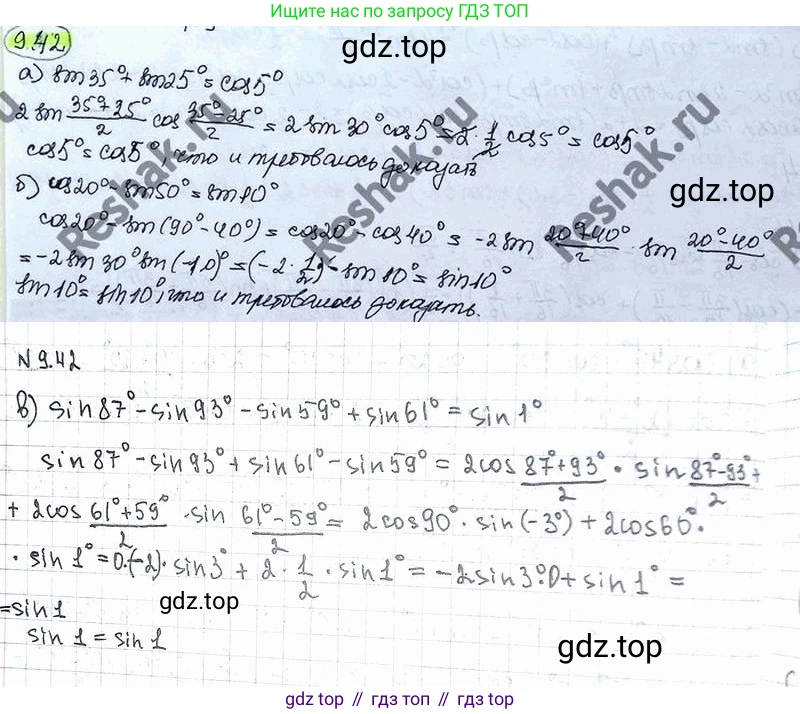 Ищите нас по запросу ГДЗ ТОП
9.42
gdz.top
а) sin 35° + sin 25° = cos 5°
2 sin (35°+25°)/2 cos (35°-25°)/2 = 2 sin 30° cos 5° = 2 · 1/2 cos 5° = cos 5°
cos 5° = cos 5°, что и требовалось доказать
б) cos 20° - sin 50° = sin 10°
gdz.top
cos 20° - sin (90° - 40°) = cos 20° - cos 40° = -2 sin (20°+40°)/2 · sin (20°-40°)/2
= -2 sin 30° sin (-10)° = (-2 · 1/2) · -sin 10° = sin 10°
sin 10° = sin 10°, что и требовалось доказать.
Reshak.ru
Reshak.ru
Reshak.ru
N 9.42
в) sin 87° - sin 93° - sin 59° + sin 61° = sin 1°
sin 87° - sin 93° + sin 61° - sin 59° = 2cos (87°+93°)/2 · sin (87°-93°)/2 +
+ 2cos (61°+59°)/2 · sin (61°-59°)/2 = 2cos 90° · sin (-3°) + 2cos 60° ·
· sin 1° = 0·(-2)· sin 3° + 2 · 1/2 · sin 1° = -2 sin 3°·0 + sin 1° =
= sin 1
gdz.top
sin 1 = sin 1
gdz.top
gdz top // гдз топ // гдз.топ